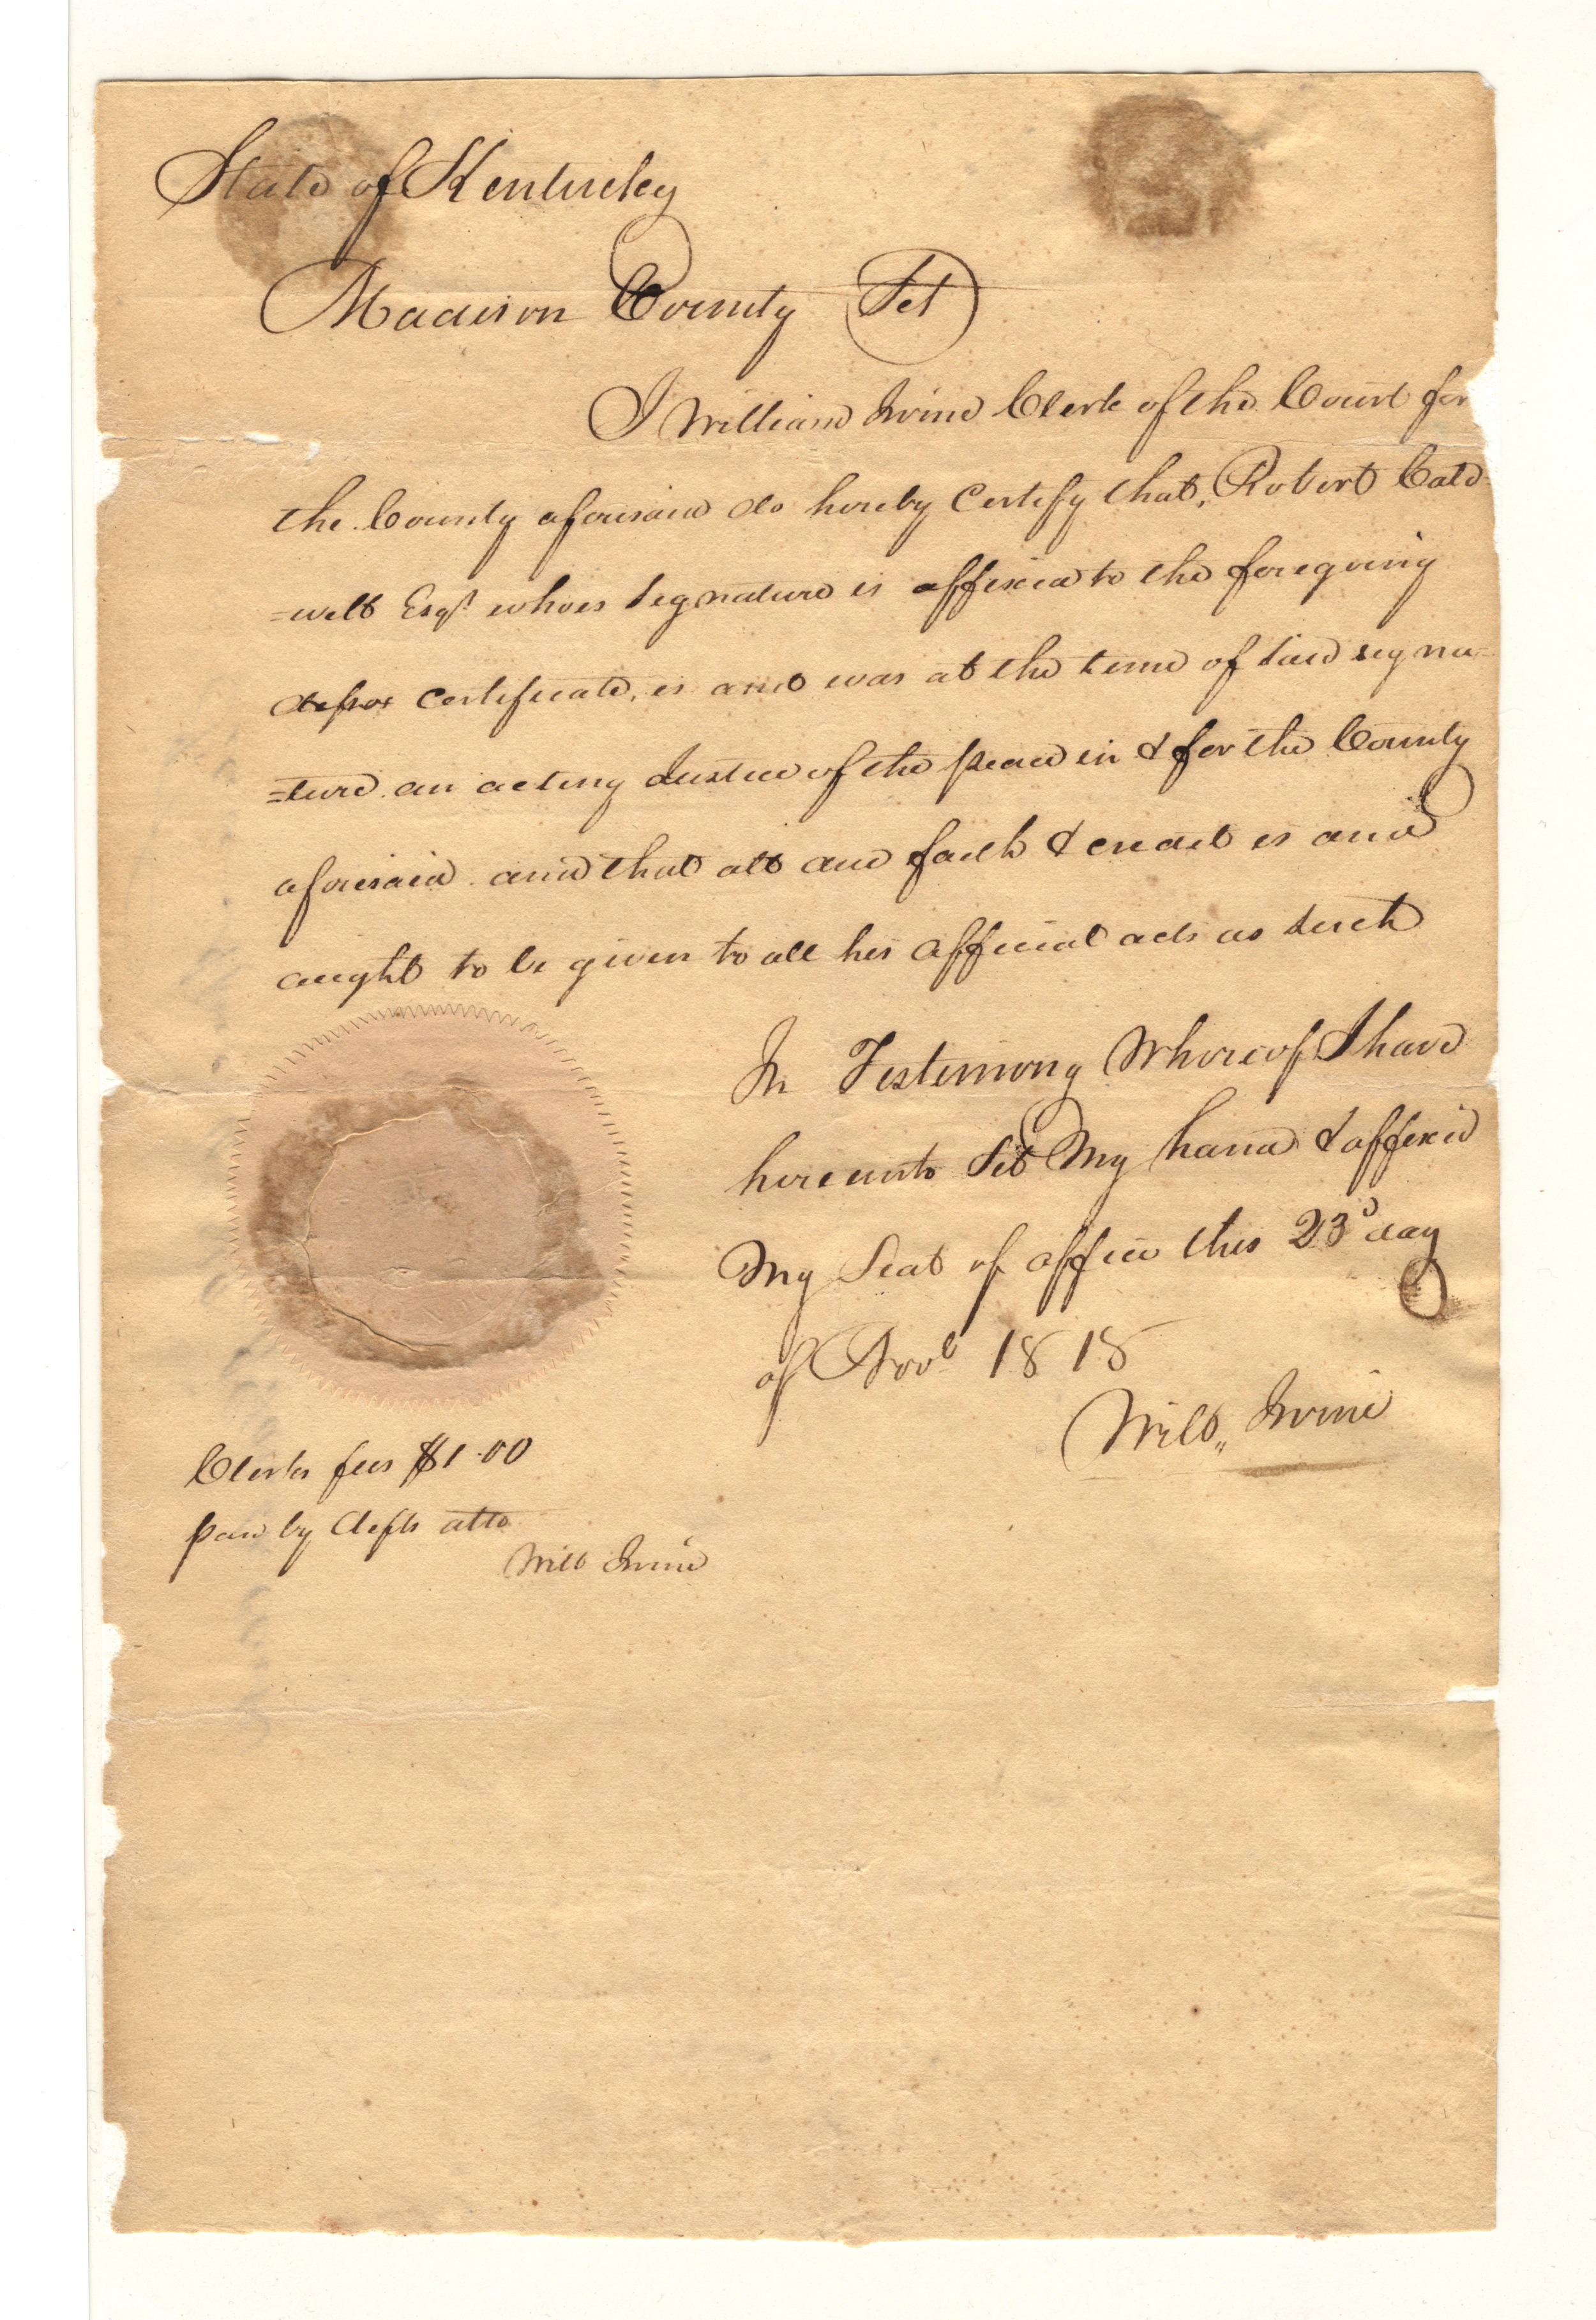 State of Kentucky
Madison County Sct
I William Irvine Clerk of the Court for
the County aforesaid do hereby Certify that, Robert Cald-
=well Esqr. whoes Signature is affixed to the foregoing
depos certificate, is and was at the time of said signa=
=ture an acting Justice of the peace in & for the County
aforesaid and that all due faith & credit is and
aught to be given to all his official acts as such
In Testimony Whereof I have
hereunto Set My hand & affixed
My Seal of office this 23d day
of Novr 1818
Will,, Irvine
Clerks fees $1.00
paid by defts atto
Will Irvine